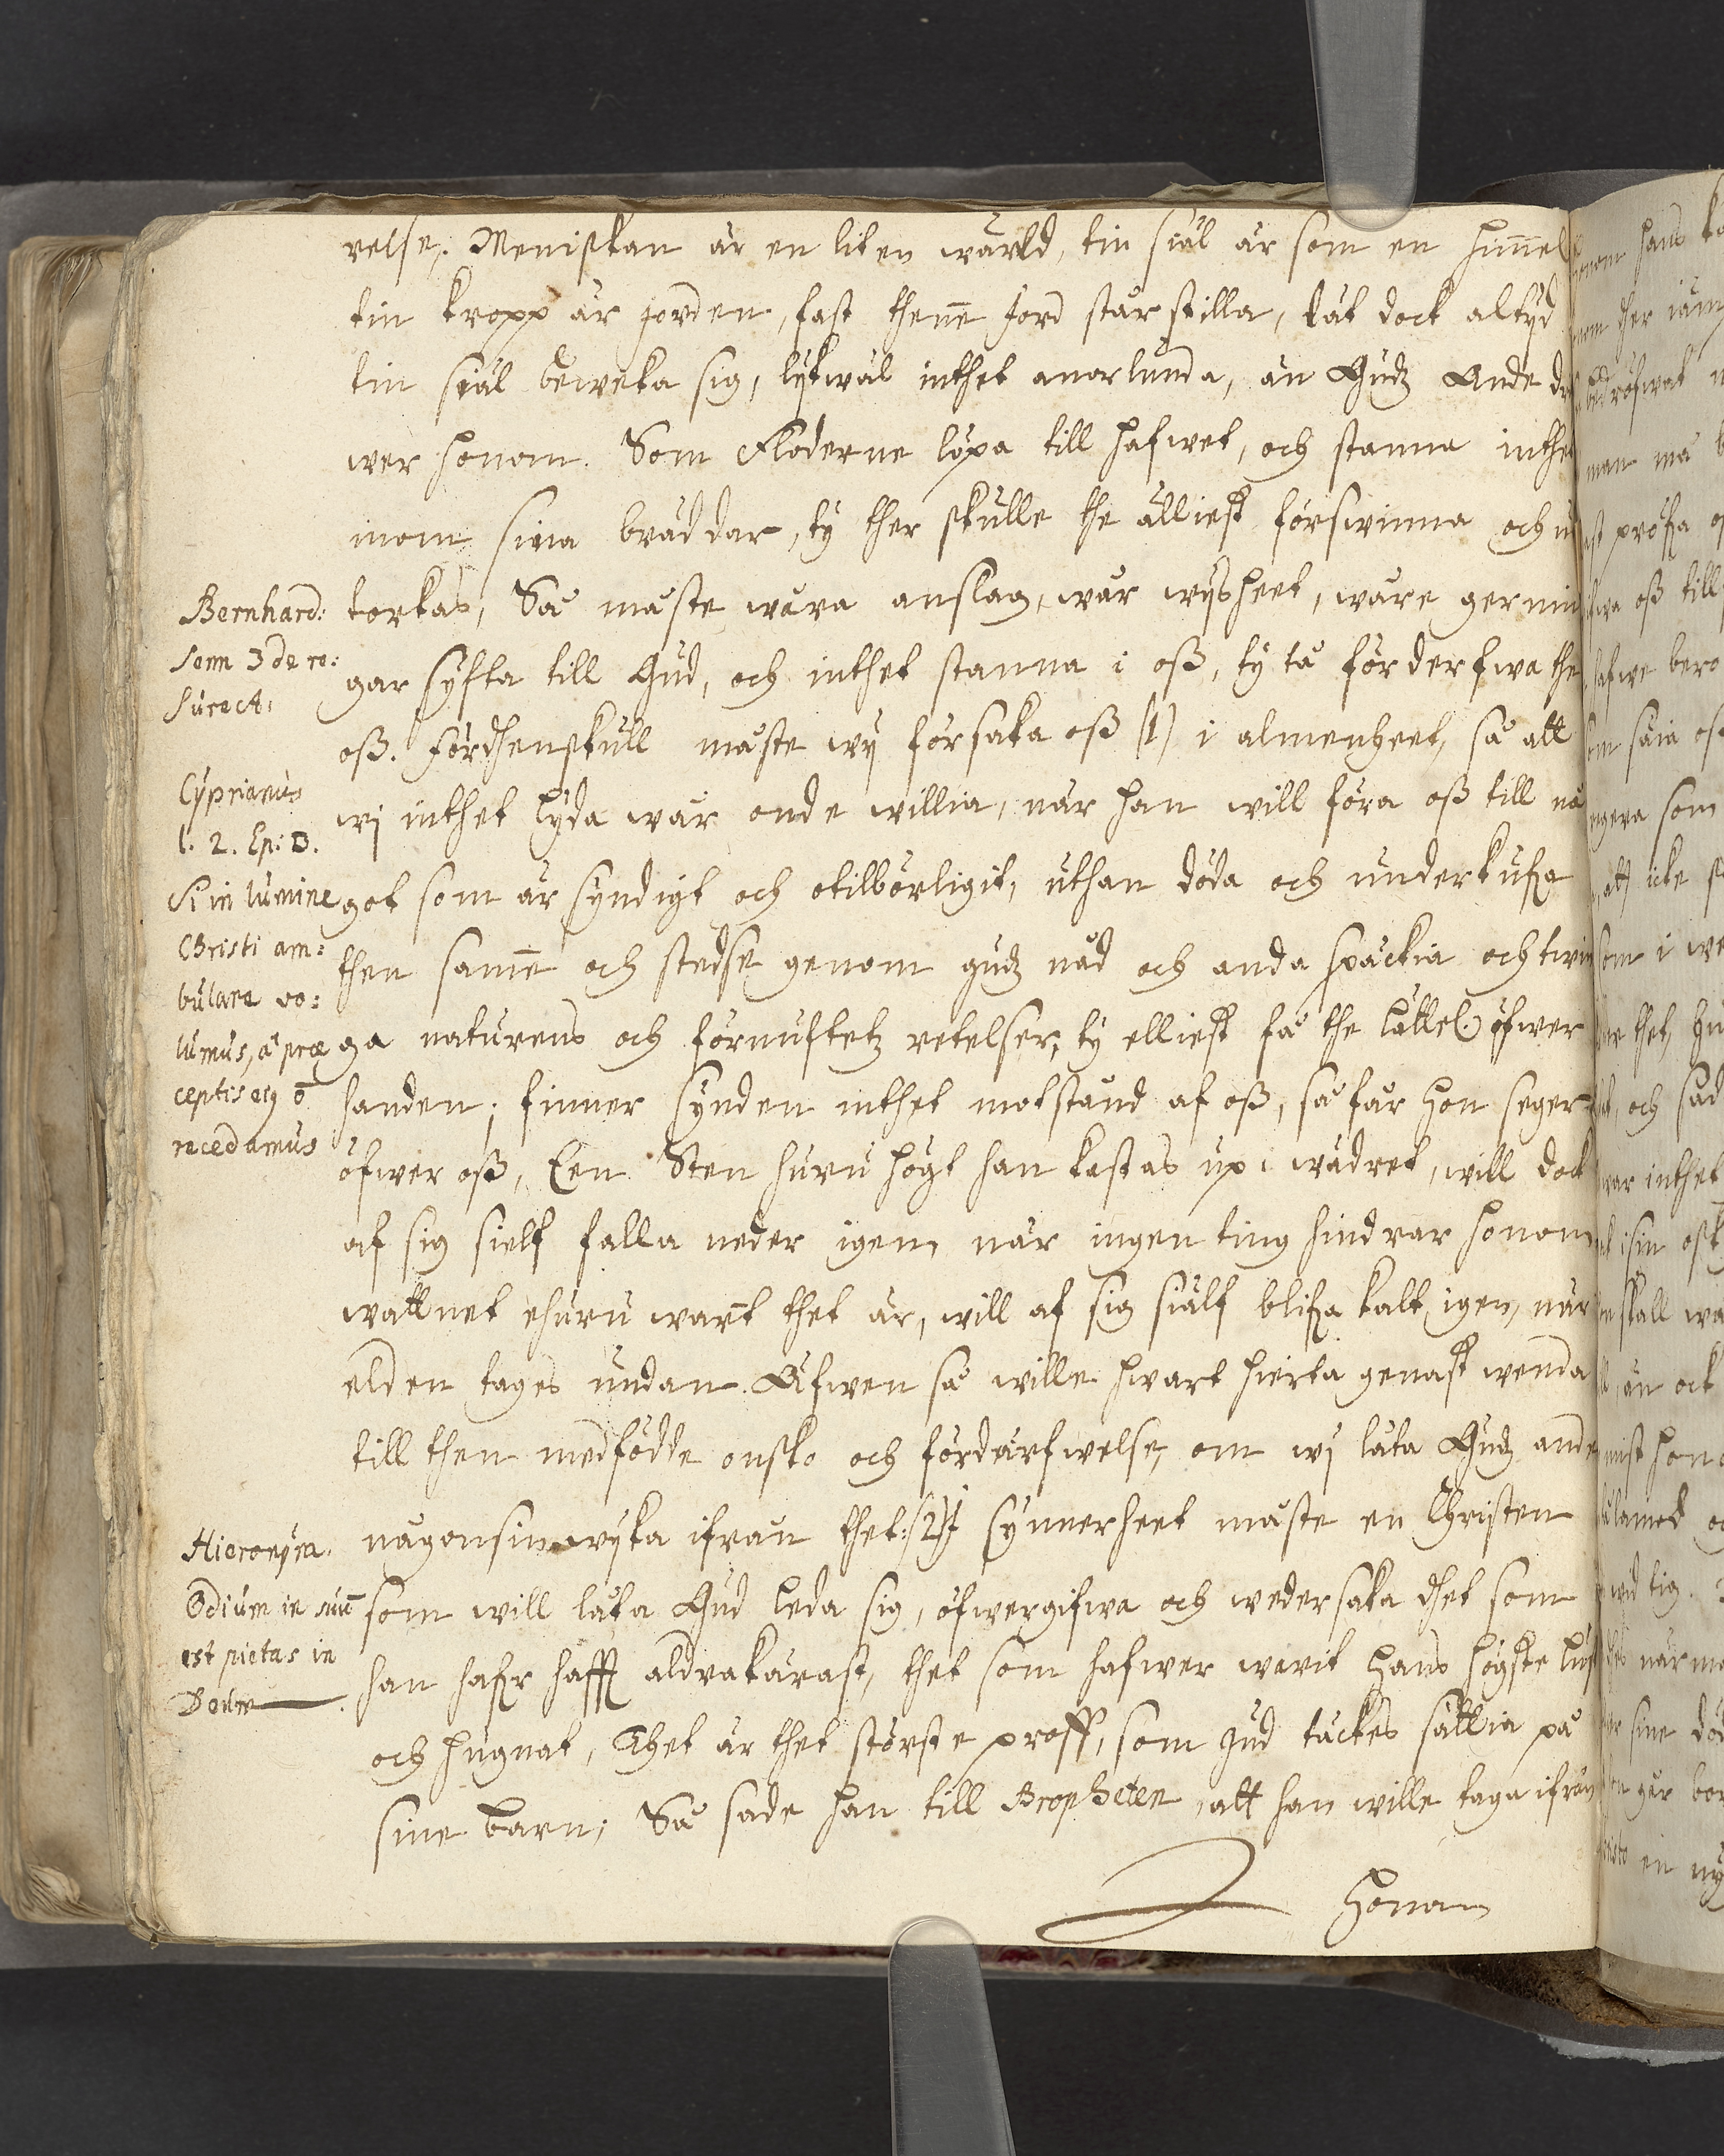 relse. Meniskan är en liten wärld, tin siäl är som en himmel
tin kropp är jorden, fast thenne Jord står stilla, låt dock altyd
tin siäl beweka sig, lykwäl inthet anorlunda, än Gudz Ande
wer honom. Som Floderne löpa till hafwet, och stanna inthet
inom sina bräddar, ty ther skulle the älliest förswinna och ut
torkas, Så måste wåra anslag, wår wysheet, wåre gernin
gar syfta till Gud, och inthet stanna i oß, ty tå förderfwa the
oß. Fördhenskull måste wÿ försaka oß (1) i almenheet, så att
wj inthet lyda wår onde willia, när han will föra oß till nå
got som är syndigt och otilbörligit, uthan döda och underkufa
then samme och stedse genom gudz nåd och anda späckia och twin
ga naturens och förnuftetz retelser, ty elliest få the lättel. öfwer
handen; finner synden inthet motstånd af oß, så får hon seger
öfwer oß, Een Sten huru högt han kastas up i wädret, will dock
af sig sielf falla neder igen, när ingen ting hindrar honom
wattnet ehuru warmt thet är, will af sig siälf blifa kalt igen, när
elden tages undan. Äfwen så wille hwart hierta genast wenda
till then medfödde onsko och förderfwelse, om wj låta Gudz ande
någonsin wyka ifrån thet: (2) J synnerheet måste en Christen
som will låta Gud leda sig, öfwergifwa och wedersaka dhet som
han hafr hafft aldrakärast, thet som hafwer warit hans högste lust
och hugnat, Thet är thet störste proff, som Gud täckes sättia på
sine barn; Så sade han till Propheten, att han wille taga ifrån
honom
Bernhard:
Serm 3 de re:
surect:
Cyprianus
l. 2. Ep: D.
Si in lumine
Christi am:
bulare vo:
lumus, a præ
ceptis ejus
recedamus
Hieronym.
Odium in suum
est pietas in
Deum.